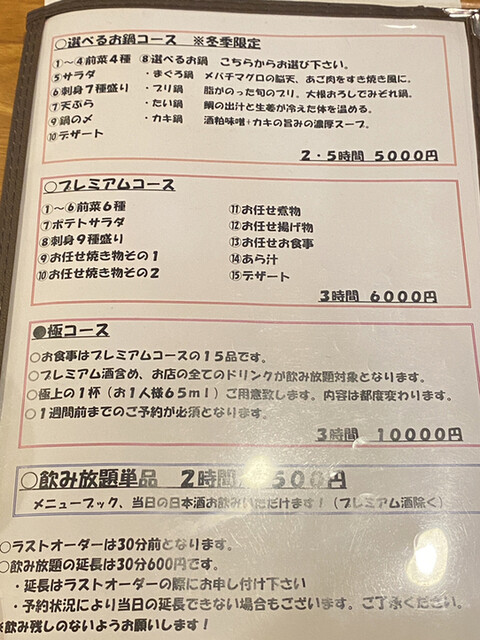 ○選べるお鍋コース　※冬季限定
①～④前菜4種　⑧選べるお鍋　こちらからお選び下さい。
⑤サラダ　・まぐろ鍋　メバチマグロの脳天、あご肉をすき焼き風に。
⑥刺身7種盛り　・ブリ鍋　脂がのった旬のブリ。大根おろしでみぞれ鍋。
⑦天ぷら　・たい鍋　鯛の出汁と生姜が冷えた体を温める。
⑨鍋の〆　・カキ鍋　酒粕味噌+カキの旨みの濃厚スープ。
⑩デザート
2・5時間　5000円
○プレミアムコース
①～⑥前菜6種　⑪お任せ煮物
⑦ポテトサラダ　⑫お任せ揚げ物
⑧刺身9種盛り　⑬お任せお食事
⑨お任せ焼き物その1　⑭あら汁
⑩お任せ焼き物その2　⑮デザート
3時間　6000円
●極コース
○お食事はプレミアムコースの15品です。
○プレミアム酒含め、お店の全てのドリンクが飲み放題対象となります。
○極上の1杯(お1人様65ml)ご用意致します。内容は都度変わります。
○1週間前までのご予約が必須となります。
3時間　10000円
○飲み放題単品　2時間　500円
メニューブック、当日の日本酒お飲みいただけます!(プレミアム酒除く)
○ラストオーダーは30分前となります。
○飲み放題の延長は30分600円です。
・延長はラストオーダーの際にお申し付け下さい
・予約状況により当日の延長できない場合もございます。ご了承ください。
※飲み残しのないようお願いします!